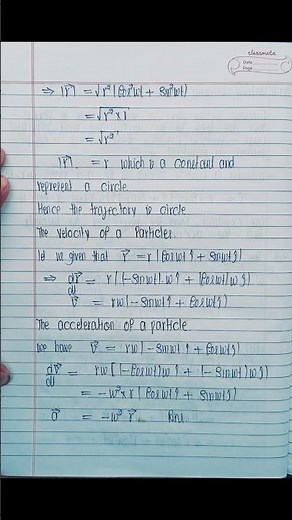 classmate
Date
Page
⇒ |r⃗| = √r²(cos²ωt + sin²ωt)
= √r² × 1
= √r²
|r⃗| = r which is a constant and
represent a circle.
Hence the trajectory is circle.
The velocity of a Particles.
Id is given that r⃗ = r(cosωt î + sinωt ĵ)
⇒ dr⃗/dt = r((-sinωt).ω î + (cosωt)ω ĵ)
v⃗ = rω(-sinωt î + cosωt ĵ)
The acceleration of a particle
we have v⃗ = rω(-sinωt î + cosωt ĵ)
dv⃗/dt = rω[(-cosωt)ω î + (-sinωt)ω ĵ)
= -ω² × r(cosωt î + sinωt ĵ)
a⃗ = -ω² r⃗. Ans.